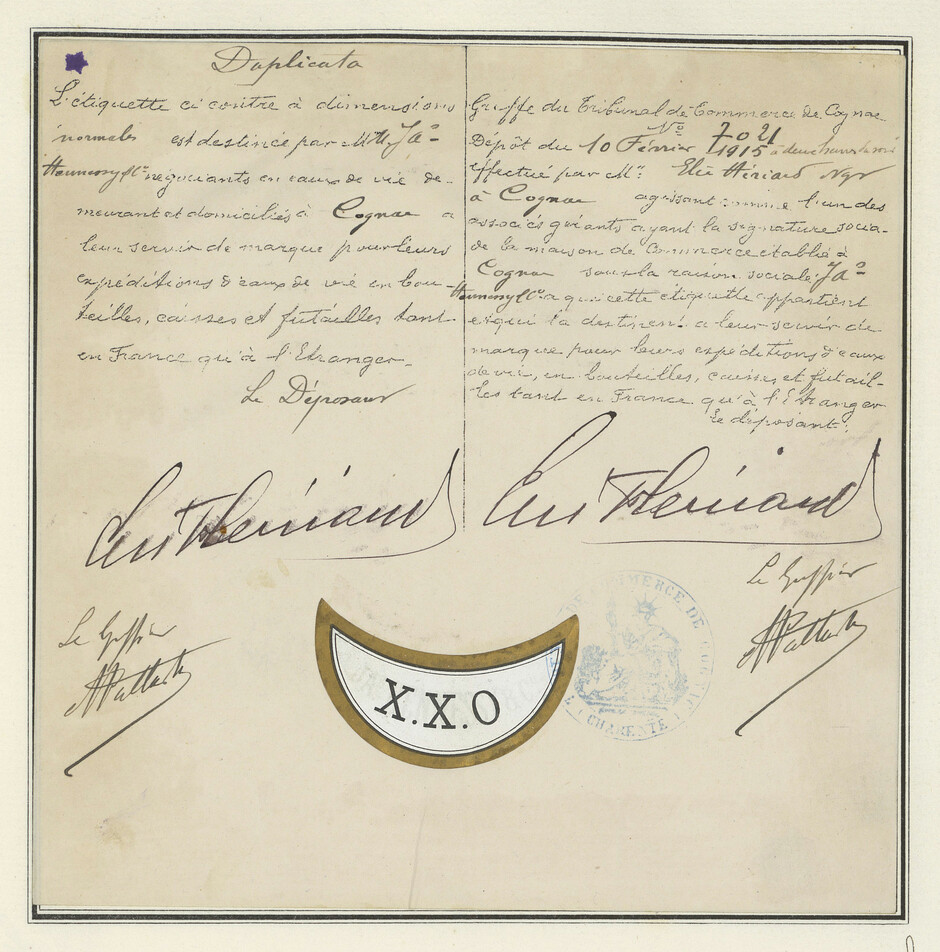 Duplicata
L'étiquette ci contre à dimensions
normales est destinée par MM. Jas
Hennessy & Co négociants en eaux de vie de-
meurant et domiciliés à Cognac a
leur servir de marque pour leurs
expéditions d'eaux de vie en bou-
teilles, caisses et futailles tant
en France qu'à l'Etranger.
Le Déposant
Le Greffier
Greffe du Tribunal de Commerce de Cognac
No 7021
Dépôt du 10 Février 1915 à deux heures du soir
effectué par Mr. Elie Hériard Ngt
à Cognac agissant comme l'un des
associés gérants ayant la signature socia-
de la maison de Commerce établie à
Cognac sous la raison sociale Jas
Hennessy & Co a qui cette étiquette appartient
et qui la destinent a leur servir de
marque pour leurs expéditions d'eaux
de vie, en bouteilles, caisses et futail-
les tant en France qu'à l'Etranger
Le déposant.
Le Greffier
X.X.O
DE COMMERCE DE COGNAC
(CHARENTE)